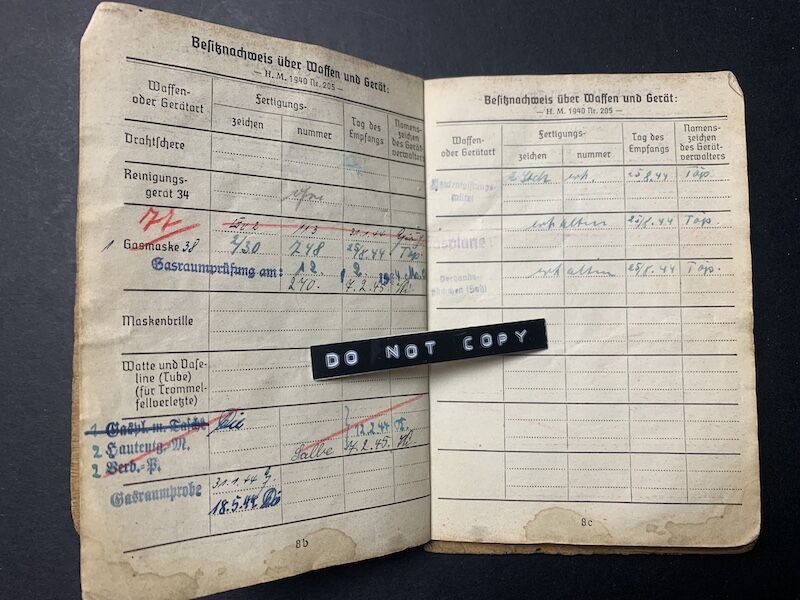 Besitznachweis über Waffen und Gerät:
— H. M. 1940 Nr. 205 —
Waffen-
oder Gerätart
Fertigungs-
zeichen
nummer
Tag des
Empfangs
Namens-
zeichen
des Gerät-
verwalters
Drahtschere
Reinigungs-
gerät 34
113
1 Gasmaske 38
2/30 248 25/8.44 Töp.
Gasraumprüfung am: 12.
270. 7.2.45.
Maskenbrille
Watte und Vase-
line (Tube)
(für Trommel-
fellverletzte)
1 Gaspl. m. Tasche
2 Hautentg.-M.
12.2.44
2 Verb.-P.
Salbe 7.2.45.
Gasraumprobe
31.1.44
18.5.44
8b
Besitznachweis über Waffen und Gerät:
— H. M. 1940 Nr. 205 —
Waffen-
oder Gerätart
Fertigungs-
zeichen
nummer
Tag des
Empfangs
Namens-
zeichen
des Gerät-
verwalters
erh. 25/8.44 Töp.
mittel
erhalten 25/8.44 Töp.
erhalten 25/8.44 Töp.
8c
DO NOT COPY